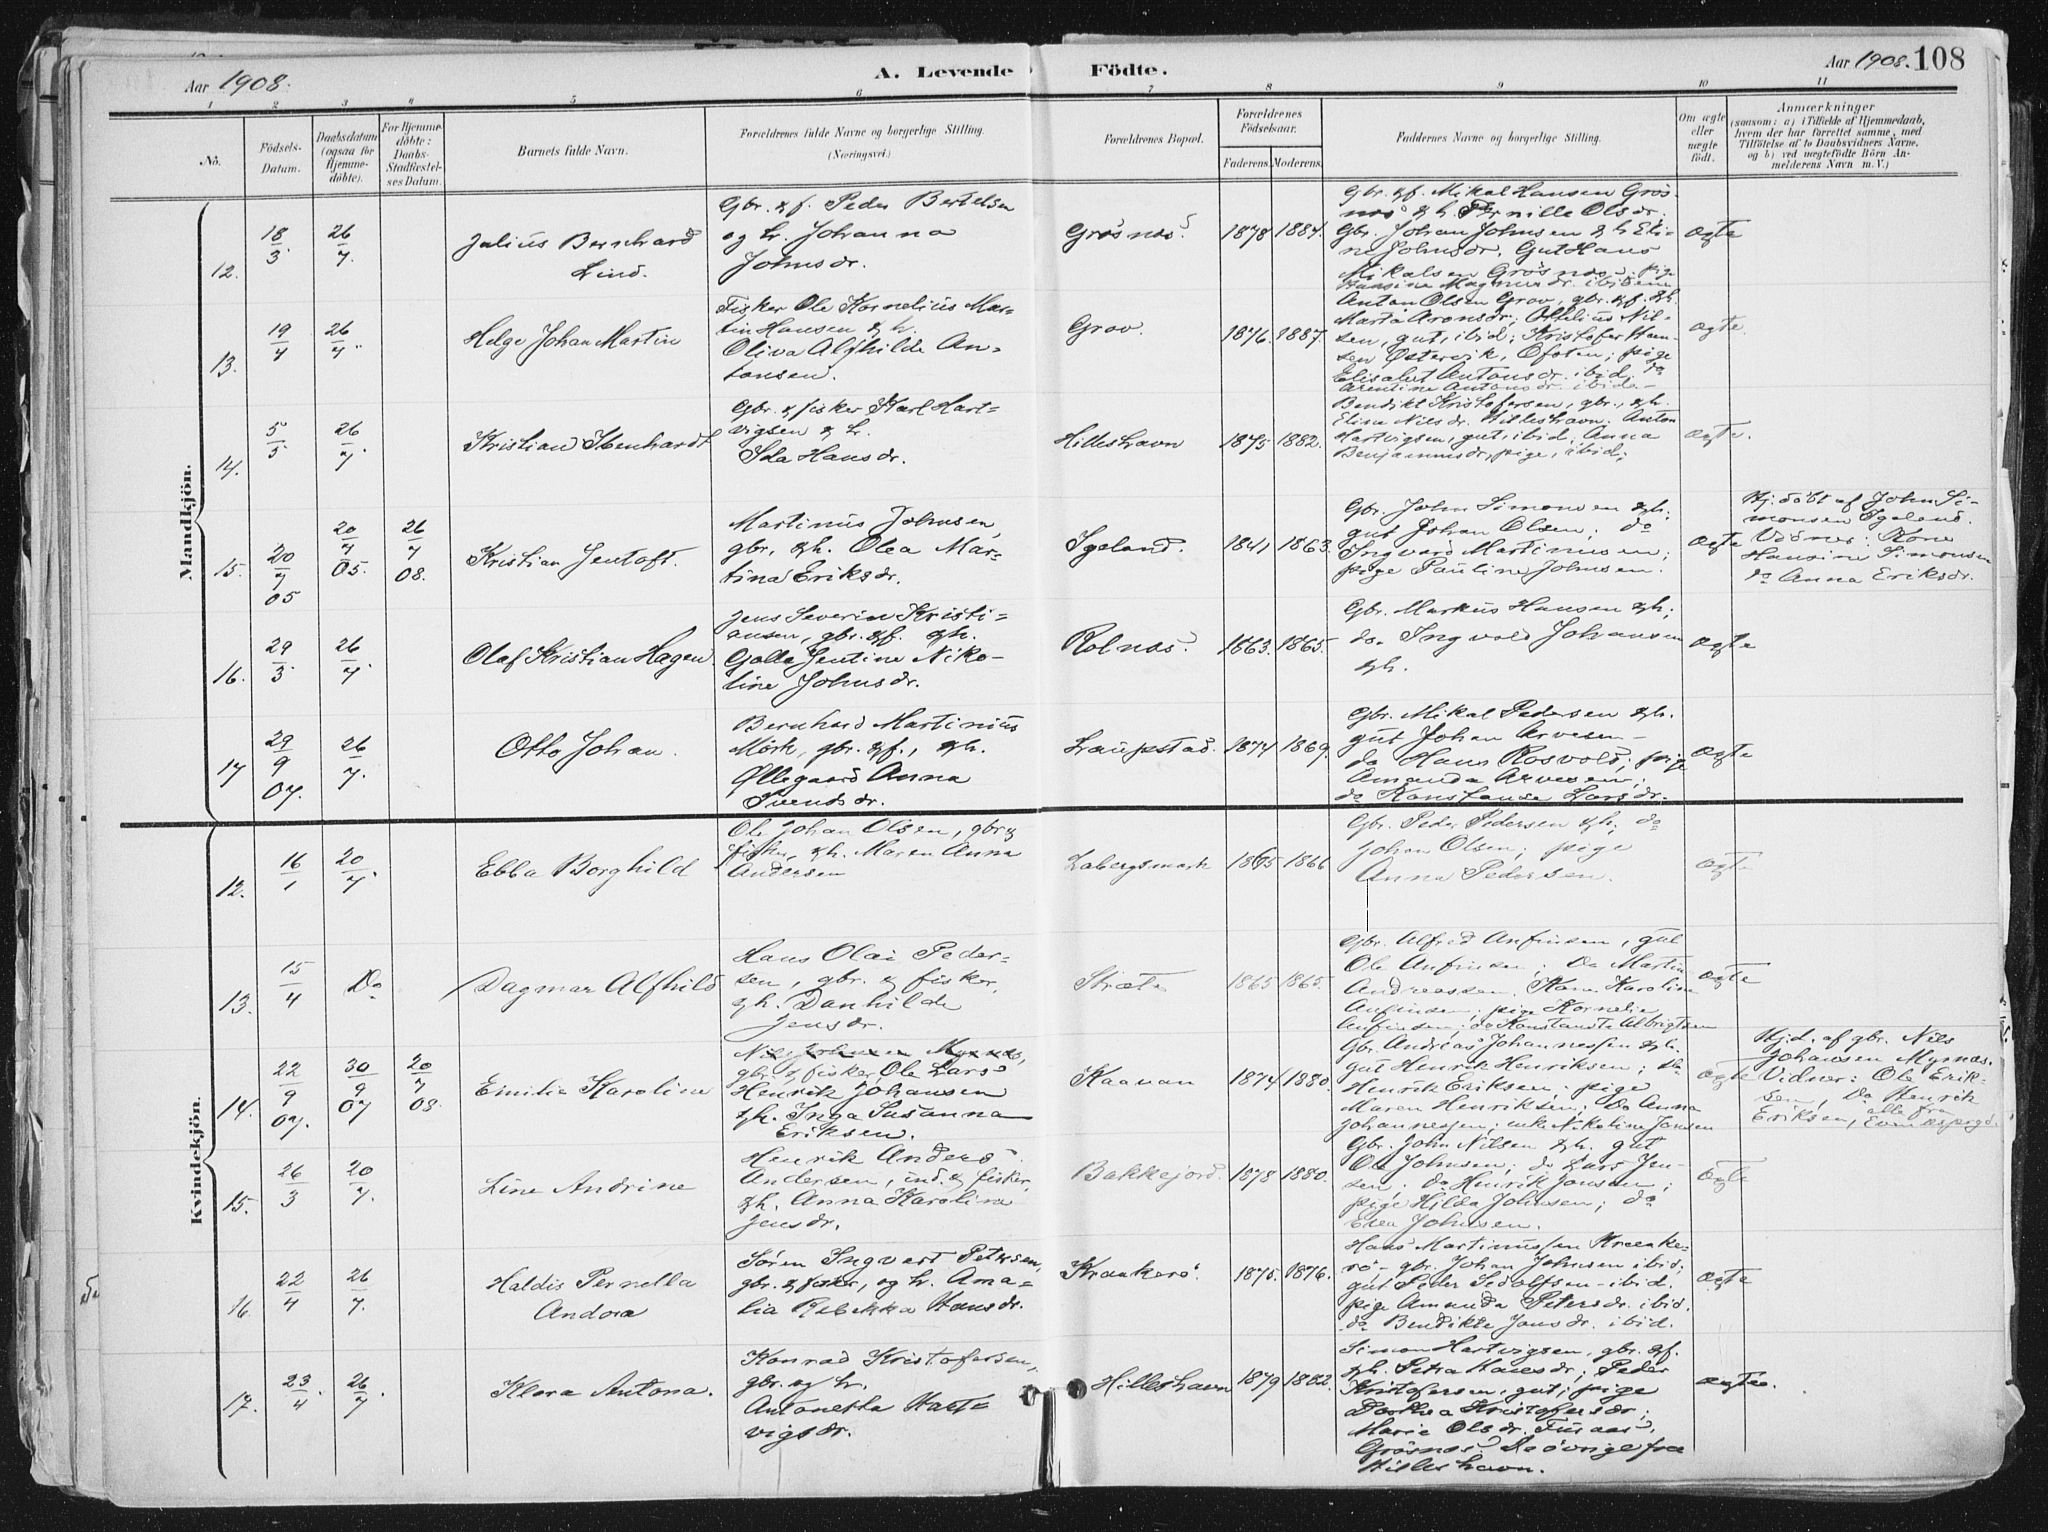 Aar 1908.
A. Levende Födte.
Aar 1908. 108
1 2 3 4 5 6 7 8 9 10 11
No.
Födsels-Datum.
Daabsdatum (ogsaa for Hjemmedöbte).
For Hjemmedöbte: Daabs-Stadfæstelses Datum.
Barnets fulde Navn.
Forældrenes fulde Navne og borgerlige Stilling.
(Næringsvei.)
Forældrenes Bopæl.
Forældrenes Födselsaar.
Faderens. Moderens.
Faddernes Navne og borgerlige Stilling.
Om ægte eller uægte födt.
Anmærkninger
(saasom: a) i Tilfælde af Hjemmedaab, hvem der har forrettet samme, med Tilföielse af to Daabsvidners Navne, og b) ved uægtefödte Börn Anmelderens Navn m. V.)
Mandkjön.
12. 18/3 26/7
Julius Bernhard
Lind.
Gbr. & f. Peder Bertelsen
og h. Johanna
Johnsdr.
Grøsnes. 1878 1884.
Gbr. & f. Mikal Hansen Grøs-
nes & h. Pernille Olsdr.
Gbr. Johan Johnsen & h. Eli-
ne Johnsdr. Gut Hans
Mikalsen Grøsnes; pige
Hansine Magnusdr. ibidem
ægte
13. 19/4 26/7.
Helge Johan Martin
Fisker Ole Kornelius Mar-
tin Hansen & h.
Oliva Alfhilde An-
tonsen.
Grov. 1876. 1887.
Anton Olsen Grov, gbr. & f. & h.
Marta Aronsdr; Ottelius Nil-
sen, gut, ibid; Kristofer Han-
sen Østervik, Ofoten; pige
Elisabet Antonsdr. ibid. do
Arentine Antonsdr. ibid.-
ægte.
14. 5/5 26/7.
Kristian Stenhardt
Gbr. & fisker Karl Hart-
vigsen & h.
Ida Hansdr.
Hilleshavn 1875 1882.
Bendikt Kristofersen, gbr., & h.
Eline Nilsdr. Hilleshavn. Anton
Hartvigsen, gut, ibid, Anna
Benjaminsdr, pige, ibid;
ægte.
15. 20/7 05 20/7 05. 26/7 08.
Kristian Jentoft.
Martinus Johnsen,
gbr, & h. Olea Mar-
tina Eriksdr.
Igeland. 1841 1863.
Gbr. John Simonsen & h;
gut Johan Olsen; do
Ingvard Martinusen;
pige Pauline Johnsen.
ægte
Hj. döbt af John Si-
monsen Igeland.
Vidner: Kone
Hansine Simonsen
do Anna Eriksdr.
16. 29/3 26/7.
Olaf Kristian Hagen
Jens Severin Kristi-
ansen, gbr. & f. & h.
Golla Jentine Niko-
line Johnsdr.
Rolnes. 1863. 1865.
Gbr. Markus Hansen & h;
do Ingvald Johansen
& h.
ægte
17 29/9 07. 26/7.
Otto Johan.
Bernhard Martinius
Mørk, gbr. & f., & h.
Øllegaard Anna
Svendsdr.
Laupstad. 1874 1869.
Gbr. Mikal Pedersen & h.
gut Johan Arvesen-
do Hans Rosvold; pige
Amanda Arvesen;
do Konstanse Larsdr.
ægte
Kvindekjön.
12. 16/1 20/7.
Ebba Borghild
Ole Johan Olsen, gbr &
fisker, & h. Maren Anna
Andersen
Labergsmark 1865 1866
Gbr. Peder Pedersen & h; do
Johan Olsen; pige
Anna Pedersen.
ægte
13. 15/4 Do
Dagmar Alfhild
Hans Olai Peder-
sen, gbr. & fisker,
& h. Danhilde
Jensdr.
Stræte 1865 1865.
Gbr. Alfred Anfinsen, gut
Ole Anfinsen; Do Martin
Andreassen. Kone Karoline
Anfinsen; pige Kornelie
Anfinsen. do Konstanse Albrigtsen
ægte
14. 22/9 07. 30/9 07 20/7 08.
Emilie Karoline
gbr. & fisker Ole Lars
Henrik Johansen
& h. Inga Susanna
Eriksen.
Kaanan 1874 1880.
Gbr. Andreas Johannessen & h.
gut Henrik Henriksen; do
Henrik Eriksen; pige
Maren Henriksen; Do Anna
Johannessen; enke Nikoline Jansen
ægte
Hj. d. af gbr. Nils
Johansen Myrnes.
Vidner: Ole Erik-
sen, Do Henrik
Eriksen, alle fra
15. 26/3 20/7.
Line Andrine
Henrik Anders
Andersen, ind. & fisker,
& h. Anna Karoline
Jensdr.
Bakkejord. 1878 1880.
Gbr. John Nilsen & h. gut
Ole Johnsen; do Lars Jen-
sen; do Henrik Jonsen;
pige Hilda Johnsen; do
Elen Johnsen.
ægte
16. 22/4 26/7.
Haldis Pernella
Andora
Søren Ingvart Petersen,
gbr. & fisker, og h. Ama-
lia Rebekka Hansdr.
Kraakerø. 1875. 1876.
Hans Martinussen Kraake-
rø- gbr. Johan Johnsen ibid;
gut Peder Sedolfsen- ibid.
pige Amanda Petersdr. ibid.
do Bendikte Jonsdr. ibid.
ægte
17. 23/4. 26/7
Klara Antona.
Konrad Kristofersen,
gbr. og h.
Antonetta Hart-
vigsdr.
Hilleshavn 1879 1882.
Simon Hartvigsen, gbr. & f.
& h. Petra Hansdr; Peder
Kristofersen, gut; pige
Dorthea Kristofersdr;
Marie Olsdr. Furaas,
Grøsnes. De øvrige fra
Hilleshavn.
ægte.